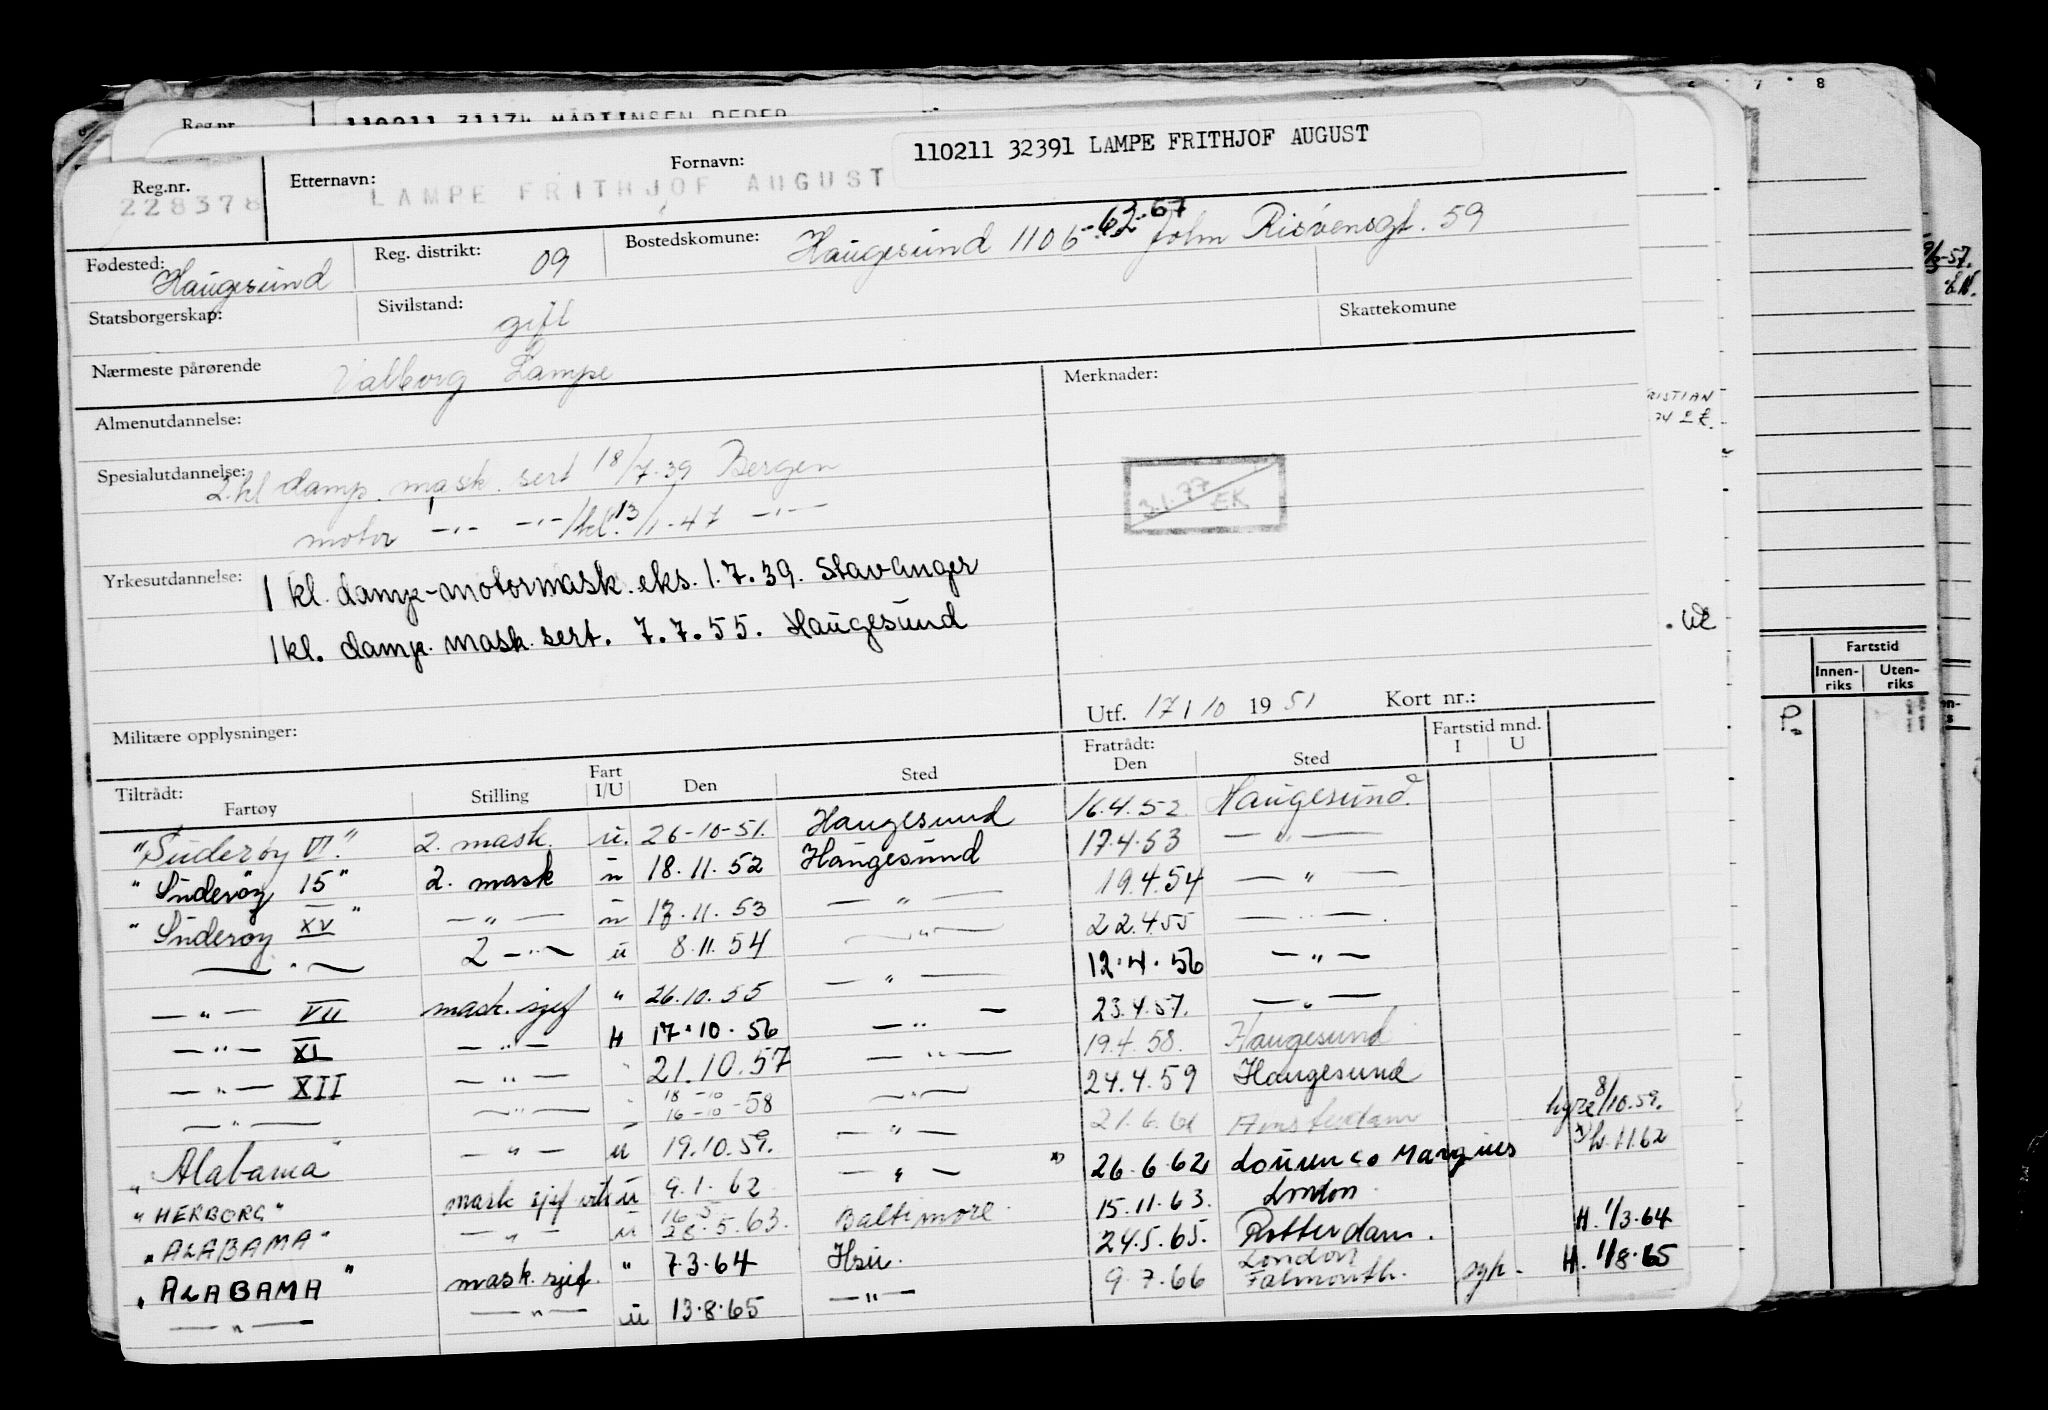 Reg.nr.
110211 31174 MARTINSEN PEDER
7 8
Reg.nr.
228378
Etternavn: LAMPE FRITHJOF AUGUST
Fornavn:
110211 32391 LAMPE FRITHJOF AUGUST
Fødested: Haugesund
Reg. distrikt: 09
Bostedskomune: Haugesund 1106 John Risøensgt. 59
Statsborgerskap:
Sivilstand: gift
Skattekomune
Nærmeste pårørende Valborg Lampe
Almenutdannelse:
Merknader:
3.1.77 EK
Spesialutdannelse: 2. kl damp. mask. sert 18/7.39 Bergen
motor —"— —"— 1 kl. 13/1-47 —"—
Yrkesutdannelse: 1 kl. damp-motormask. eks. 1.7.39. Stavanger
1 kl. damp. mask. sert. 7.7.55. Haugesund
Utf. 17/10 1951 Kort nr.:
Militære opplysninger:
Tiltrådt: Fartøy Stilling Fart I/U Den Sted Fratrådt: Den Sted Fartstid mnd. I U
"Suderøy VI." 2. mask. u. 26-10-51. Haugesund 16.4.52 Haugesund.
"Suderøy 15" 2. mask u 18.11.52 Haugesund 17.4.53 —"—
"Suderøy XV" —"— u 13.11.53 —"— 19.4.54 —"—
—"— 2 —"— u 8.11.54 —"— 22.4.55 —"—
—"— VII mask. sjef " 26.10.55 —"— 12.4.56 —"—
—"— XI —"— H 17.10.56 —"— 23.4.57. —"—
—"— XII —"— 21.10.57 —"— 19.4.58. Haugesund
—"— —"— 18-10 16-10-58 —"— 24.4.59 Haugesund
"Alabama" —"— u 19.10.59. —"— 21.6.61 Amsterdam hyre 8/10.59.
"HERBORG" mask sjef u 9.1.62 —"— x) 26.6.62 Lourenco Marques x) h. 11.62
"ALABAMA" —"— u 16.5 28.5.63. Baltimore. 15.11.63. London.
"ALABAMA" mask. sjef. " 7.3.64 Hsu. 24.5.65. Rotterdam. H. 1/3.64
—"— —"— u 13.8.65 —"— 9.7.66 London Falmouth. syk. H. 1/8.65
Fartstid
Innen-riks Uten-riks